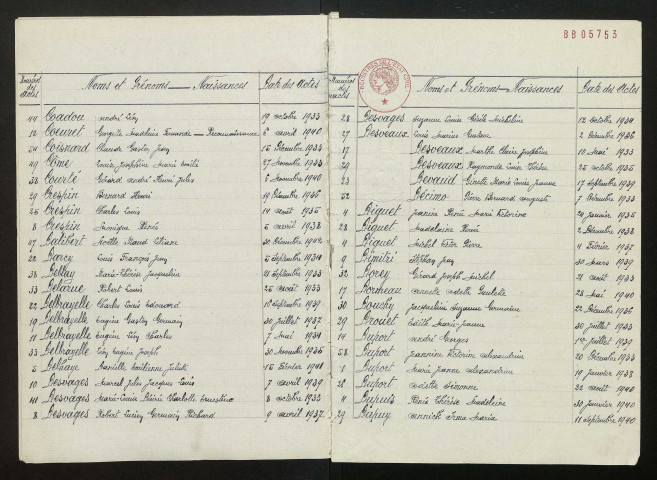 BB 05753
Numéros des Actes Noms et Prénoms — Naissances Date des Actes
44 Coadou André Léry 19 octobre 1933
12 Coeuret Georgette Madeleine Fernande — Reconnaissance 6 avril 1940
54 Coisnard Claude Gaston Jean 15 Décembre 1933
49 Côme Louis Josephine Marie Emilie 27 Novembre 1933
38 Courté Gérard André Henri Jules 5 Novembre 1940
29 Crespin Bernard Henri 19 Décembre 1936
25 Crespin Charles Louis 14 août 1935
8 Crespin Monique Renée 5 avril 1938
47 Dalibert Noëlle Maud Liliane 30 Décembre 1942
22 Darcy Louis François Jean 5 Septembre 1934
38 Dellay Marie-Thérèse Jacqueline 21 Septembre 1933
33 Delarue Robert Louis 25 août 1933
22 Delbrayelle Charles Louis Edouard 18 Septembre 1939
19 Delbrayelle Eugène Gaston Germain 30 Juillet 1937
11 Delbrayelle Eugène Léry Charles 7 Mai 1934
33 Delbrayelle Léry Eugène Joseph 30 Novembre 1935
5 Delhaye Marcelle Emilienne Juliette 15 Février 1941
10 Desvages Marcel Jules Jacques Louis 7 avril 1939
41 Desvages Marie-Louise Désirée Charlotte Ernestine 8 octobre 1933
8 Desvages Robert Lucien Germain Richard 9 avril 1937
Numéros des actes Noms et Prénoms — Naissances Date des Actes
28 Desvages Suzanne Louise Gisèle Micheline 12 octobre 1934
27 Desveaux Louis Marius Gustave 2 Décembre 1936
17 Desveaux Marthe Claire Joséphine 10 Mai 1933
29 Desveaux Raymonde Louise Thérèse 25 octobre 1935
23 Devaud Ginette Marie Louise Jeanne 17 Septembre 1939
52 Décimo Pierre Bernard Auguste 7 Décembre 1933
4 Diguet Jeanine Renée Marie Victorine 20 Janvier 1935
28 Diguet Madeleine Renée 2 Décembre 1938
4 Diguet Michel Victor Pierre 4 Février 1937
9 Dimitri Stéphan Jean 30 Mars 1939
32 Dorey Gérard Joseph Michel 21 août 1933
17 Dorneau Annette Odette Paulette 28 Mai 1940
30 Douchy Jacqueline Suzanne Germaine 22 Décembre 1936
29 Drouet Edith Marie-Jeanne 30 Juillet 1933
14 Duport André Georges 1er Juillet 1939
58 Duport Jeannine Victorine Alexandrine 20 Décembre 1933
1 Duport Marie Jeanne Alexandrine 19 Janvier 1938
28 Duport Odette Simonne 22 août 1940
4 Dupuis Renée Thérèse Madeleine 30 Janvier 1940
29 Dupuy Annick Irma Maria 11 Septembre 1940